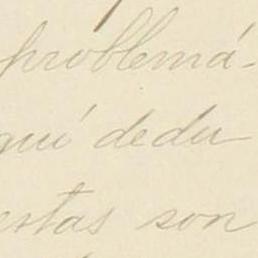 problemá-
quí dedu
estas son